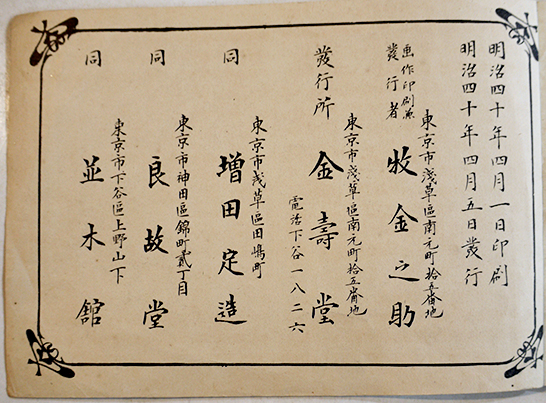 明治四十年四月一日印刷
明治四十年四月五日發行
東京市淺草區南元町拾五番地
畫作印刷兼
發行者
牧金之助
東京市淺草區南元町拾五番地
發行所
金壽堂
電話下谷一八二六
東京市浅草區田嶋町
同
増田定造
東京市神田區錦町貳丁目
同
良故堂
東京市下谷區上野山下
同
並木舘